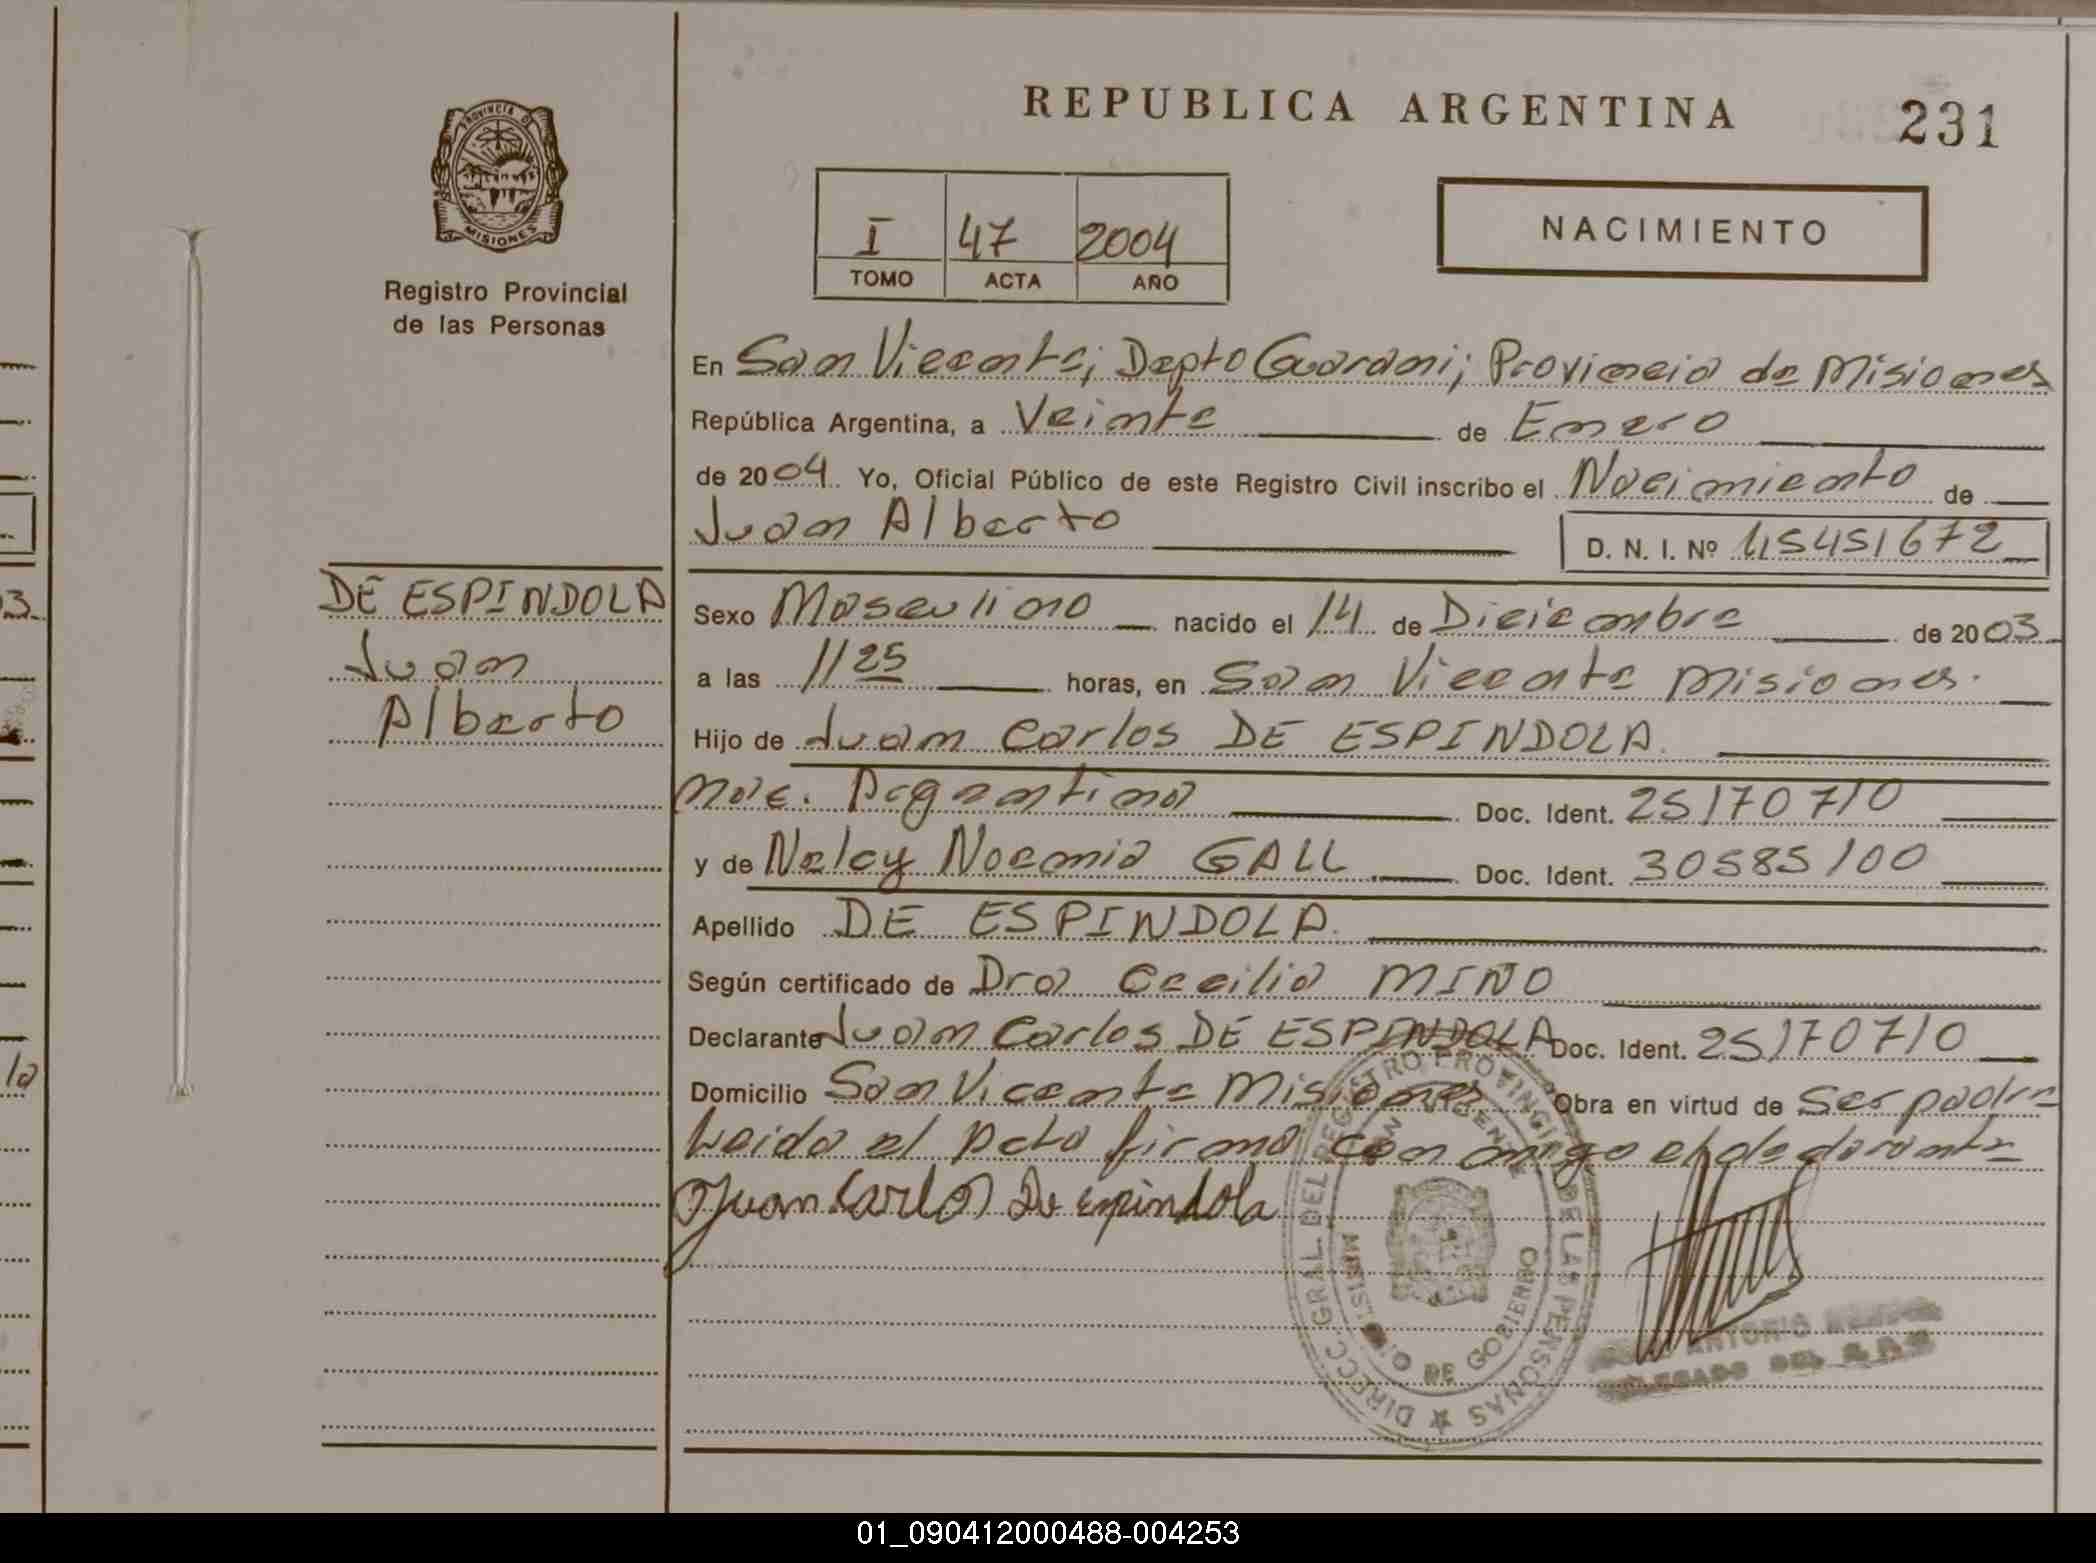 REPUBLICA ARGENTINA
231
PROVINCIA D
MISIONES
Registro Provincial
de las Personas
I 47 2004
TOMO ACTA AÑO
NACIMIENTO
En San Vicente; Depto Guarani; Provincia de Misiones
República Argentina, a Veinte de Enero
de 2004 Yo, Oficial Público de este Registro Civil inscribo el Nacimiento de
Juan Alberto
D. N. I. Nº 45451672
DE ESPINDOLA
Juan
Alberto
Sexo Masculino nacido el 14 de Diciembre de 2003
a las 11 25 horas, en San Vicente Misiones.
Hijo de Juan Carlos DE ESPINDOLA.
Nac. Argentina Doc. Ident. 25170710
y de Nelcy Noemia GALL Doc. Ident. 30585100
Apellido DE ESPINDOLA.
Según certificado de Dra Cecilia MIÑO
Declarante Juan Carlos DE ESPINDOLA Doc. Ident. 25170710
Domicilio San Vicente Misiones Obra en virtud de Ser padre
Leida el Acta firma conmigo el declarante
Juan Carlos De espindola
DIRECC. GRAL. DEL REGISTRO PROVINCIAL DE LAS PERSONAS
MINISTERIO DE GOBIERNO
ANTONIO
DELEGADO DEL
03
la
01_090412000488-004253